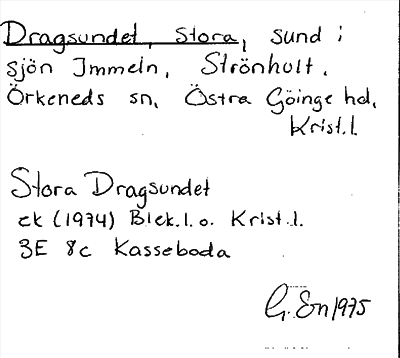 Dragsundet, Stora, sund i
sjön Immeln, Strönhult.
Örkeneds sn, Östra Göinge hd,
Krist.l.
Stora Dragsundet
ek (1974) Blek.l.o. Krist.l.
3E 8c Kasseboda
G. En 1975